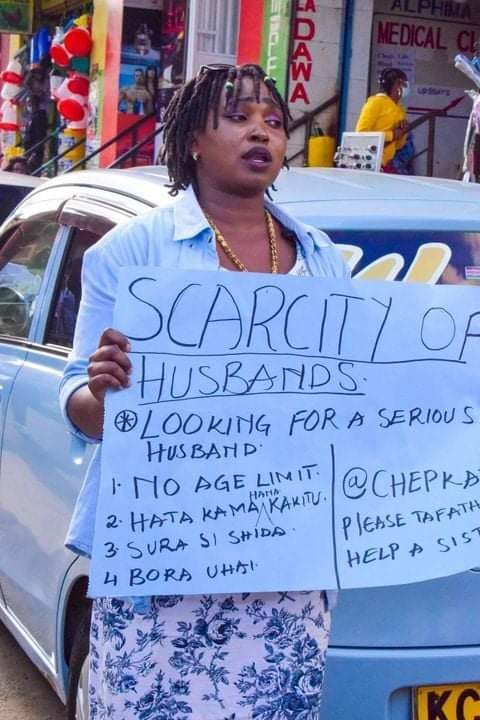 ALPHIMA
MEDICAL CL
LA
DAWA
SCARCITY OF
HUSBANDS.
* LOOKING FOR A SERIOUS
HUSBAND.
1. NO AGE LIMIT.
2. HATA KAMA HANA KAKITU.
3. SURA SI SHIDA.
4 BORA UHAI.
@CHEPKA
PLEASE TAFATH
HELP A SIST
KC